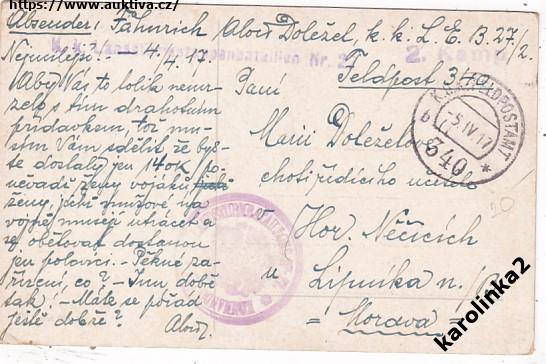 https://www.auktiva.cz/
Absender: Fähnrich Alois Doležel, k. k. L. E. B. 27/2.
k. k. Landsturmetappenbataillon Nr. 2
2. Komp
Feldpost 340
Nejmilejší! — 4./4. 17.
Aby Vás to tolik nemrzelo s tím drahotním
přídavkem, též musím
Vám sdělit že byste
dostaly jen 140K
poněvadž ženy vojáků
ženy, jichž mužové na
vojně musejí utrácet a
se obětovat dostanou
jen polovici. — Pěkné zařízení,
co? — Inu, dobře
tak! — Máte se pořád
ještě dobře? Alois.
K.u.K. FELDPOSTAMT
5. IV 17
b
340
*
Paní
Marii Doleželové
choti řídícího učitele
Hor. Nětčicích
u Lipníka n./B.
= Morava =
20
karolinka2